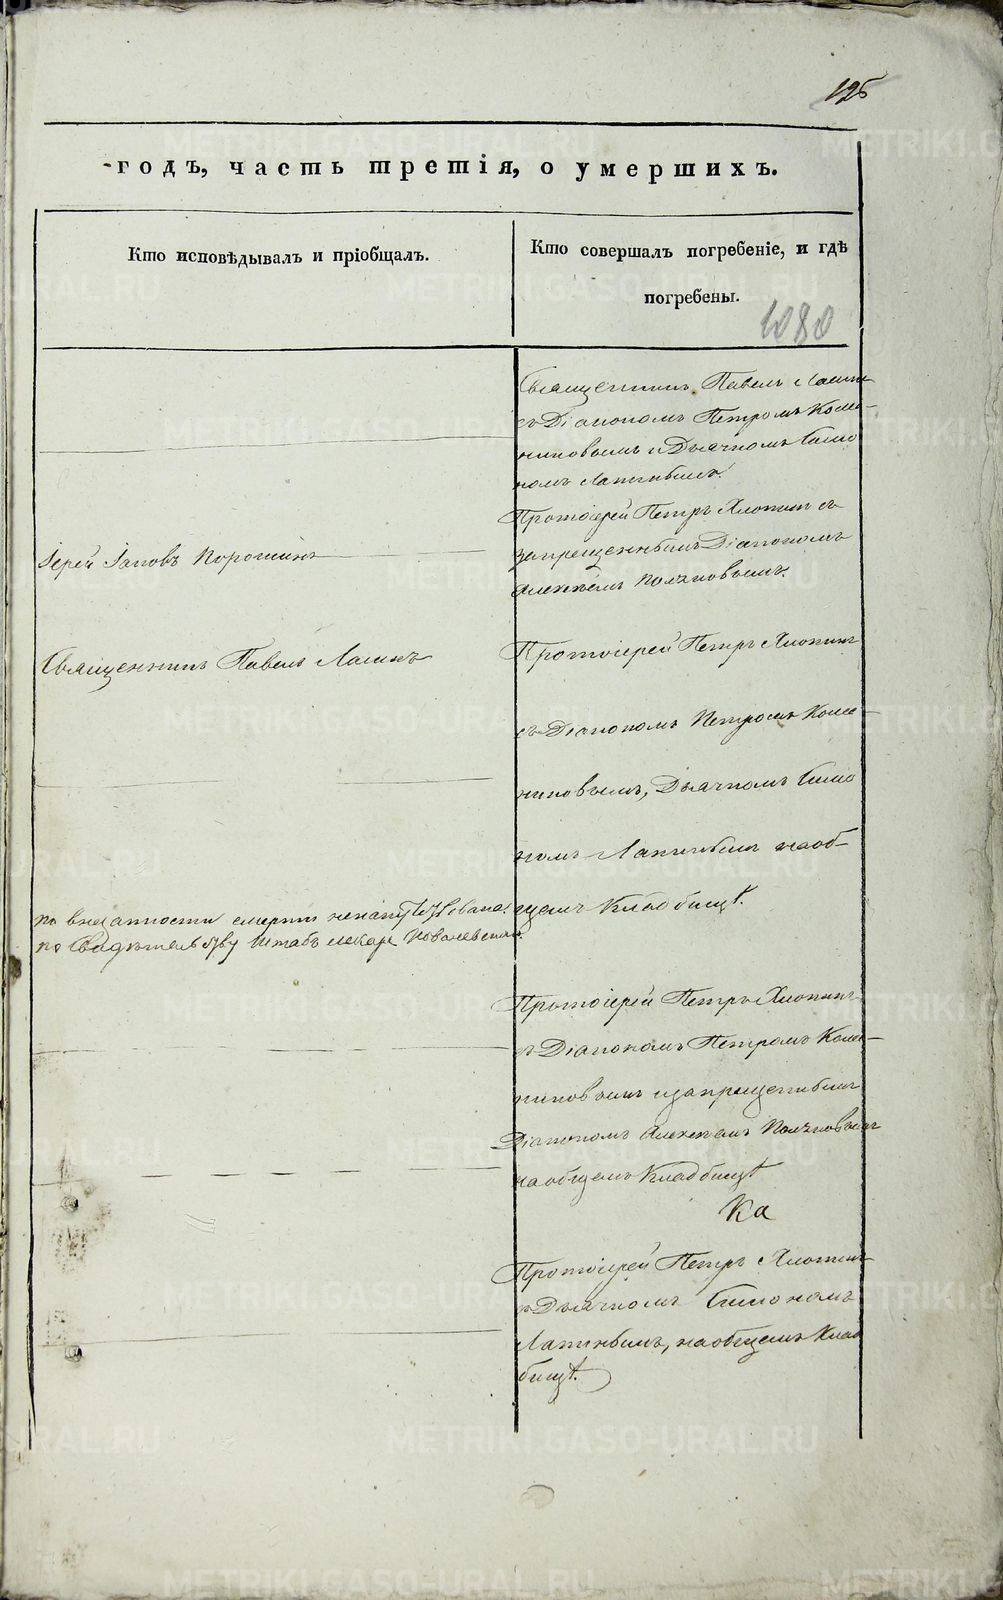 125
-годъ, часть третія, о умершихъ.
Кто исповѣдывалъ и пріобщалъ.
Кто совершалъ погребеніе, и гдѣ
погребены.
1080
Священникъ Павелъ
съ Діакономъ Петромъ
и Дьячкомъ Симо
номъ Лапинымъ.
Протоіерей Петръ Хлопинъ съ
запрещеннымъ Діакономъ
Іерей Іаковъ Порошинъ
Священникъ Павелъ
Протоіерей Петръ Хлопинъ
съ Діакономъ Петромъ
Дьячкомъ Симо
номъ Лапинымъ на об-
по внезапности смерти
щемъ Кладбищѣ.
по Свидѣтельству Штабъ лекаря
Протоіерей Петръ Хлопинъ
съ Діакономъ Петромъ
и запрещеннымъ
Діакономъ
на общемъ Кладбищѣ
Ка
Протоіерей Петръ Хлопинъ
съ Дьячкомъ Симономъ
Лапинымъ, на общемъ Клад
бищѣ.
METRIKI.GASO-URAL.RU